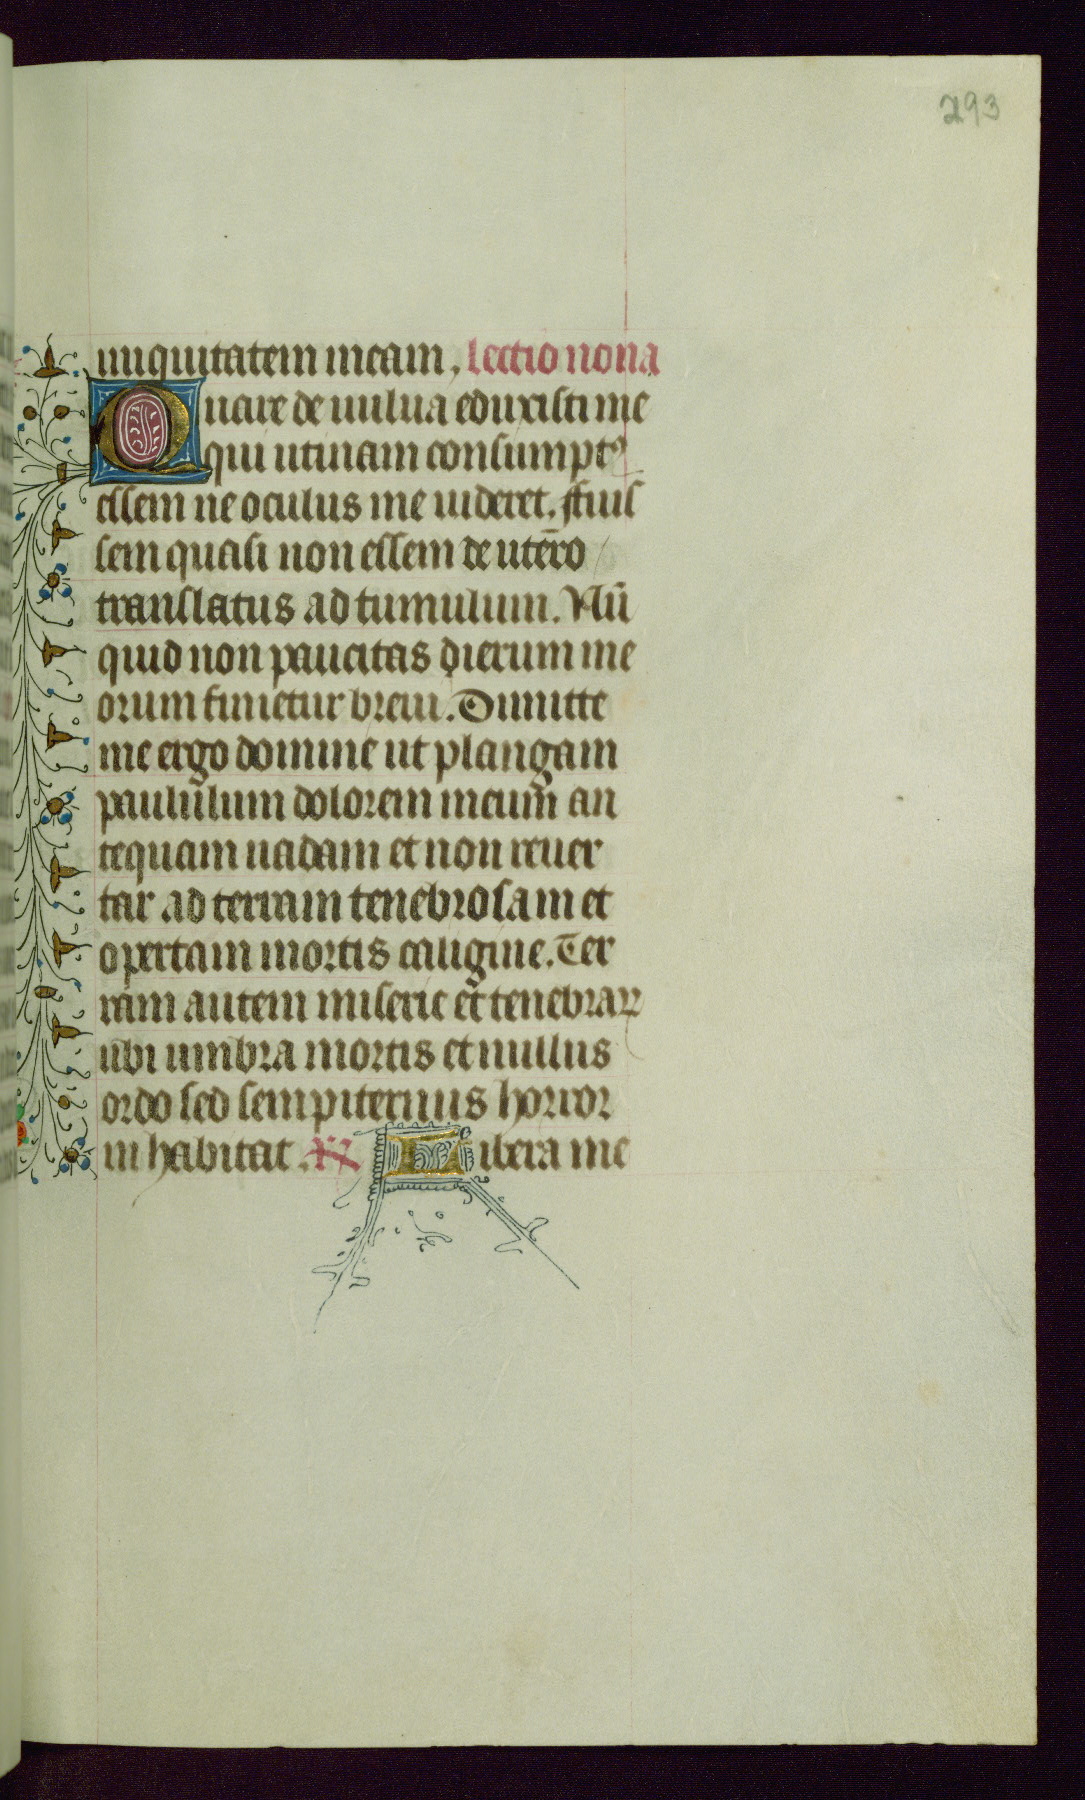 293
iniquitatem meam. lectio nona
Quare de uulua eduxisti me
qui utinam consumptꝰ
essem ne oculus me uideret. ffuis
sem quasi non essem de utero
translatus ad tumulum. Nū
quid non paucitas dierum me
orum finietur breui. Dimitte
me ergo domine ut plangam
paululum dolorem meum an
tequam uadam et non reuer
tar ad terram tenebrosam et
opertam mortis caligine. Ter
ram autem miserie et tenebraꝝ
ubi umbra mortis et nullus
ordo sed sempiternus horror
inhabitat. R̸ Libera me